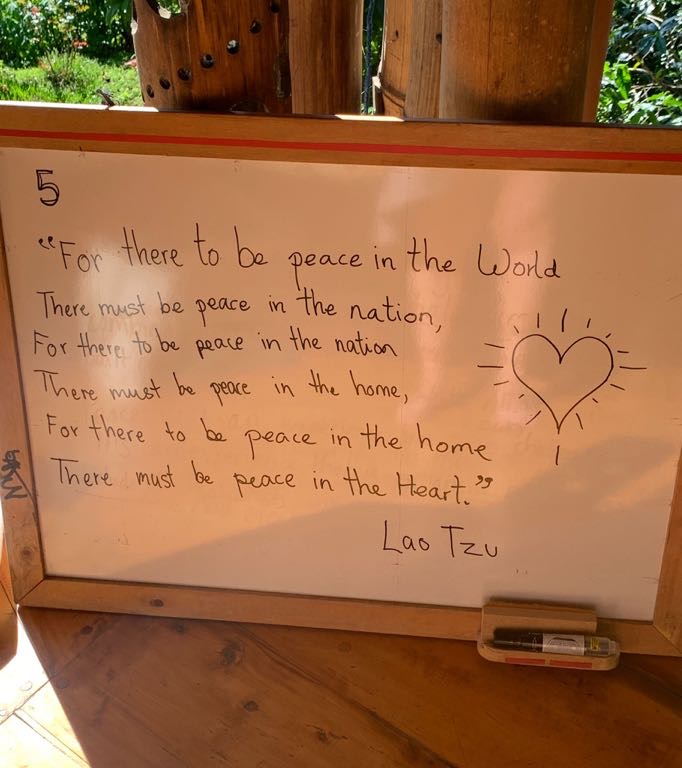 5
“For there to be peace in the World
There must be peace in the nation,
For there to be peace in the nation
There must be peace in the home,
For there to be peace in the home
There must be peace in the Heart.”
Lao Tzu